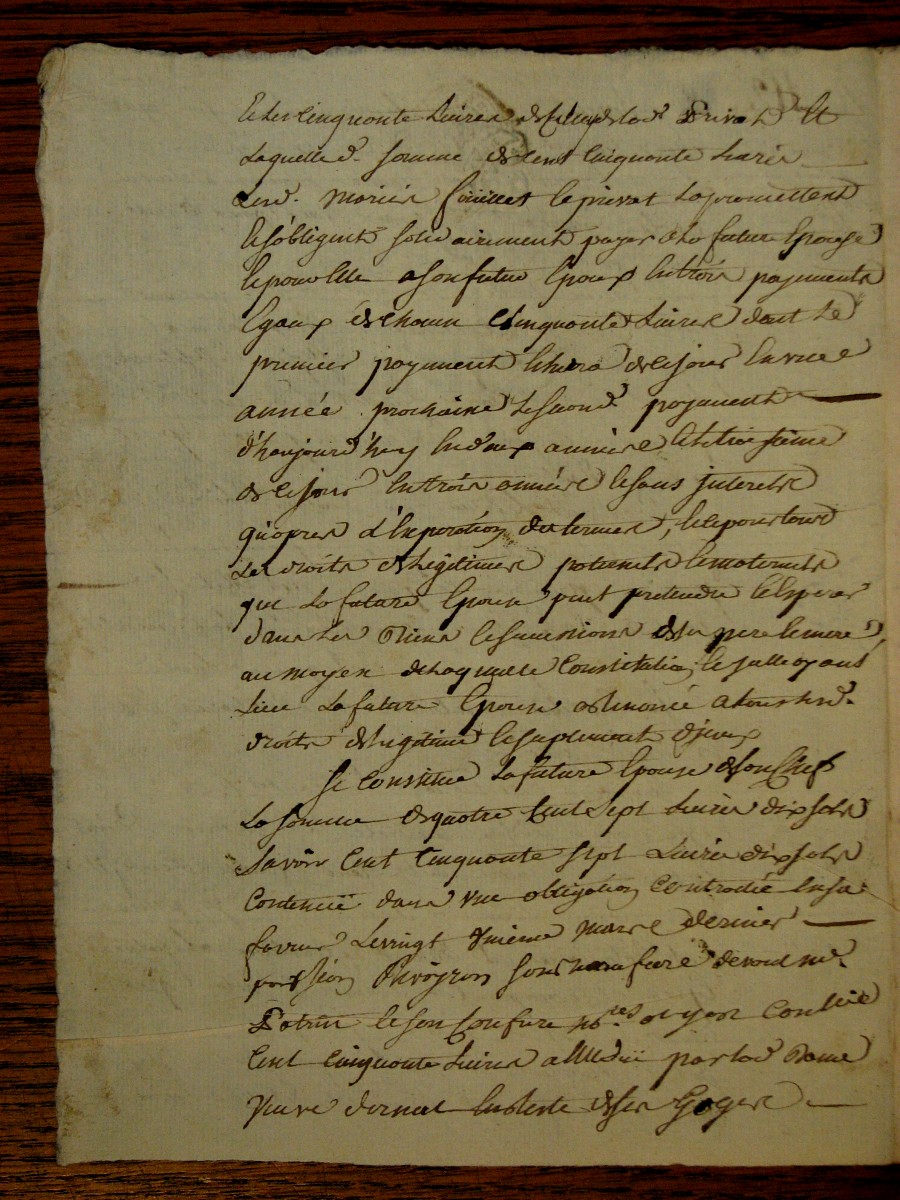 et les cinquante livres de celuy de lad. Privat Et
laquelle d. somme de cent cinquante livres
Lesd. mariés fouillet le privat la promettent
le s'obligent solidairement payer a la future Epouse
le pour Elle a son futur Epoux En trois payements
Egaux de chacun cinquante Livres dont le
premier payement sera de ce jour En une
année prochaine le second payement
d'haujourd'huy En deux années le troisième
de ce jour En trois années le sans interets
qu'apres l'Expiration des termes, le ce pour tous
Les droits de legitimes paternels le maternels
que La future Epouse peut pretendre le Esperer
dans les Biens le successions de ses pere le mere,
au moyen de laquelle Constitution le salle ayant
Lieu La future Epouse a Renoncé a tous sesd.
droits de Legitime le suplement d'iceux
Se constitue La future Epouse de son Chef
La somme de quatre Cent sept Livres dix sols
Savoir Cent Cinquante sept Livres dix sols
contenue dans une obligation Contractée En sa
faveur Le vingt unieme mars dernier
par sion sous nous devant me.
le son Confrere nres
Cent Cinquante Livres a Elle par lad. Dame
veuve En reste de ses Gages